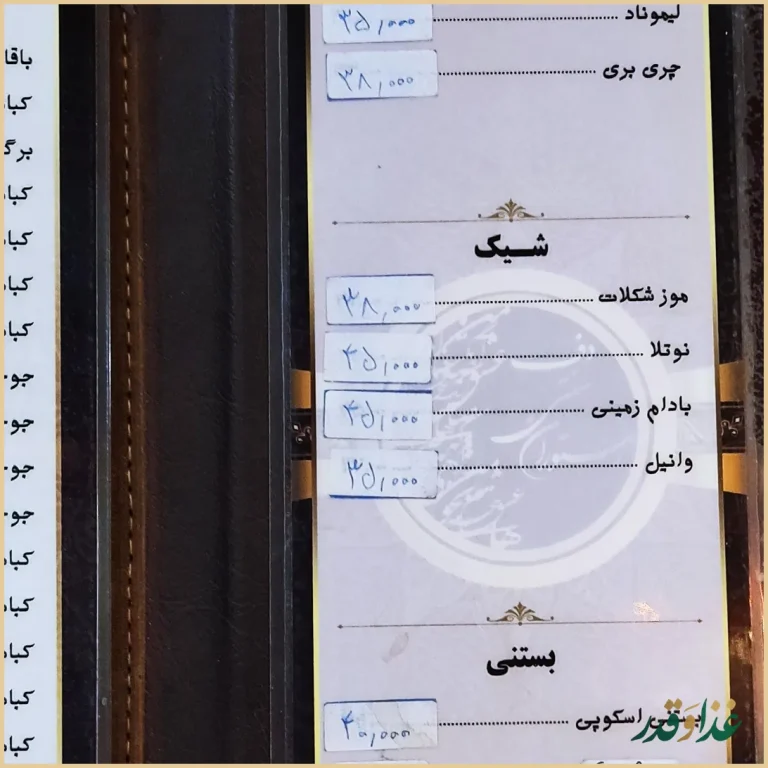 لیموناد ........ ۳۵,۰۰۰
چری بری ........ ۳۸,۰۰۰
شیک
موز شکلات ........ ۳۸,۰۰۰
نوتلا ........ ۴۵,۰۰۰
بادام زمینی ........ ۴۵,۰۰۰
وانیل ........ ۳۵,۰۰۰
بستنی
بستنی اسکوپی ........ ۴۰,۰۰۰
غذا و قدر
باقا
کبا
برگ
کبا
کبا
کبا
کبا
جو
جو
جو
جو
کبا
کبا
کبا
کبا
کبا